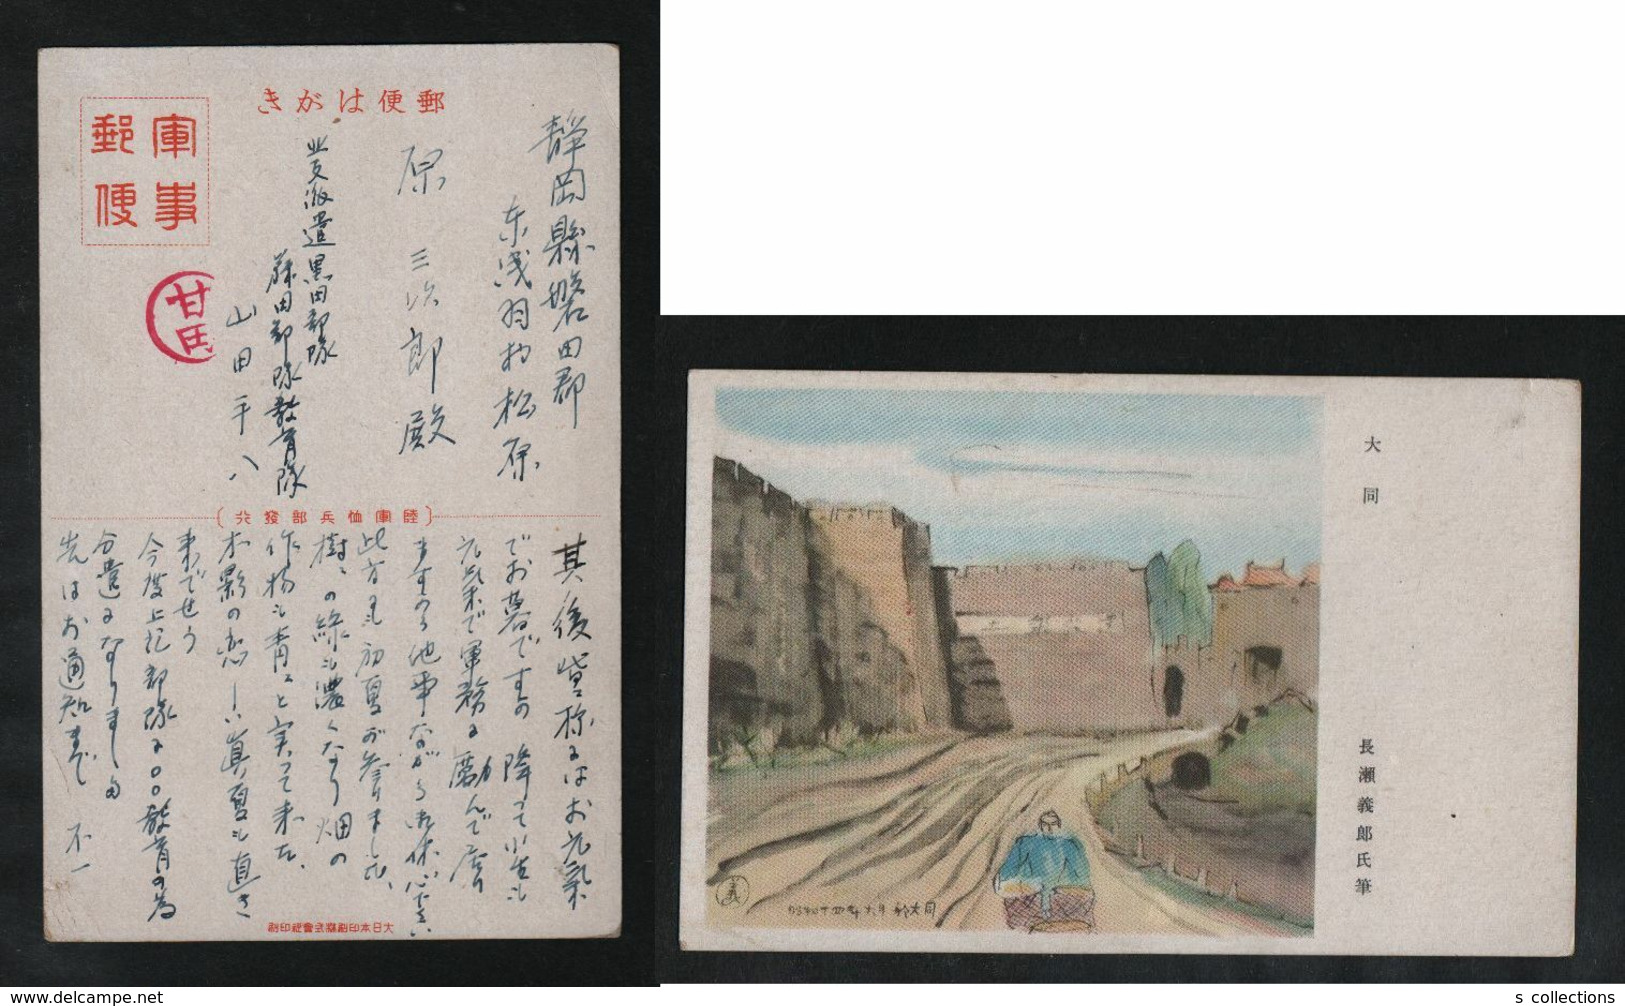 郵便はがき
軍事
郵便
静岡縣磐田郡
東浅羽村松原
原三治郎殿
北支派遣黒田部隊
藤田部隊教育隊
山田平八
〔陸軍恤兵部發行〕
其後貴称にはお元氣
でお暮ですの 降て小生も
元気で軍務に励んで居り
ますから他事ながら御休心下さい
此方も初夏が参りました、
樹々の緑も濃くなり畑の
作物も青々と実って来た、
木影の恋しい真夏も直き
来でせう
今度上記部隊に〇〇教育の為
分遣になりました
先はお通知まで 不一
大日本印刷株式會社印刷
大同
長瀬義郎氏筆
昭和十四年六月 於大同
義
s collections